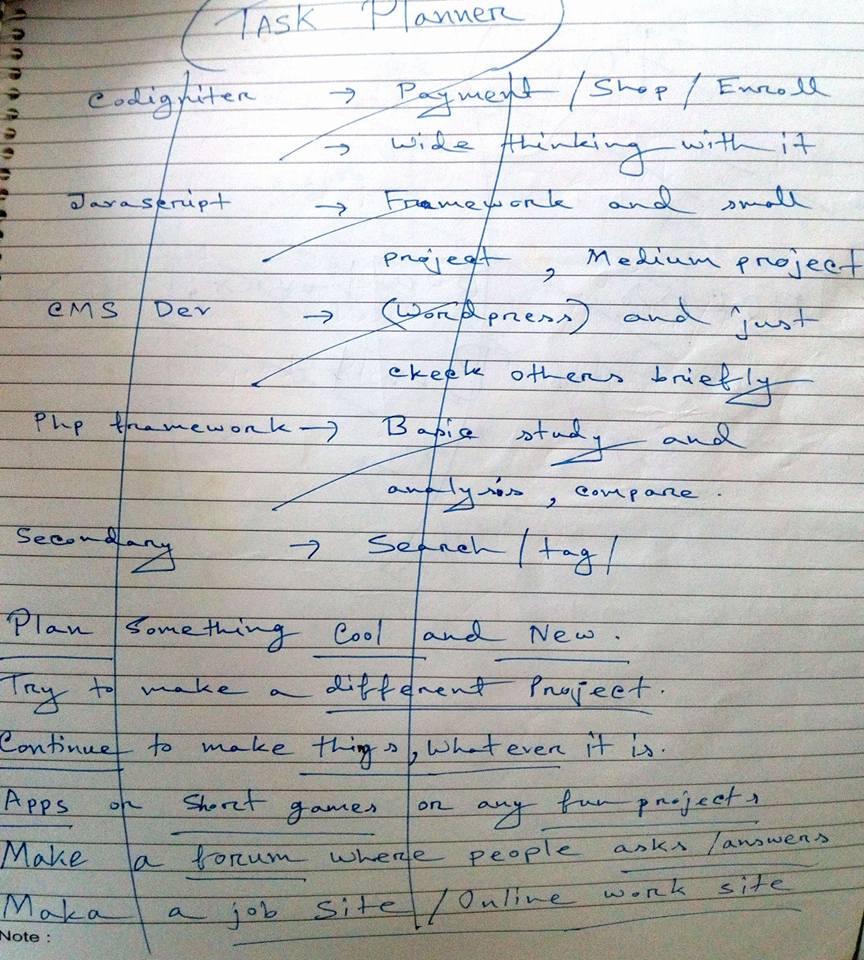 TASK Planner
Codigniter → Payment / Shop / Enroll
→ Wide thinking with it
Javascript → Framework and small
project , Medium project
CMS Dev → (Wordpress) and just
ckeck others briefly
Php framework → Basic study and
analysis , compare .
Secondary → Search / tag /
Plan Something Cool and New .
Try to make a different Project .
Continue to make things , Whatever it is .
Apps or Short games or any fun projects
Make a forum where people asks / answers
Maka a job site / Online work site
Note :